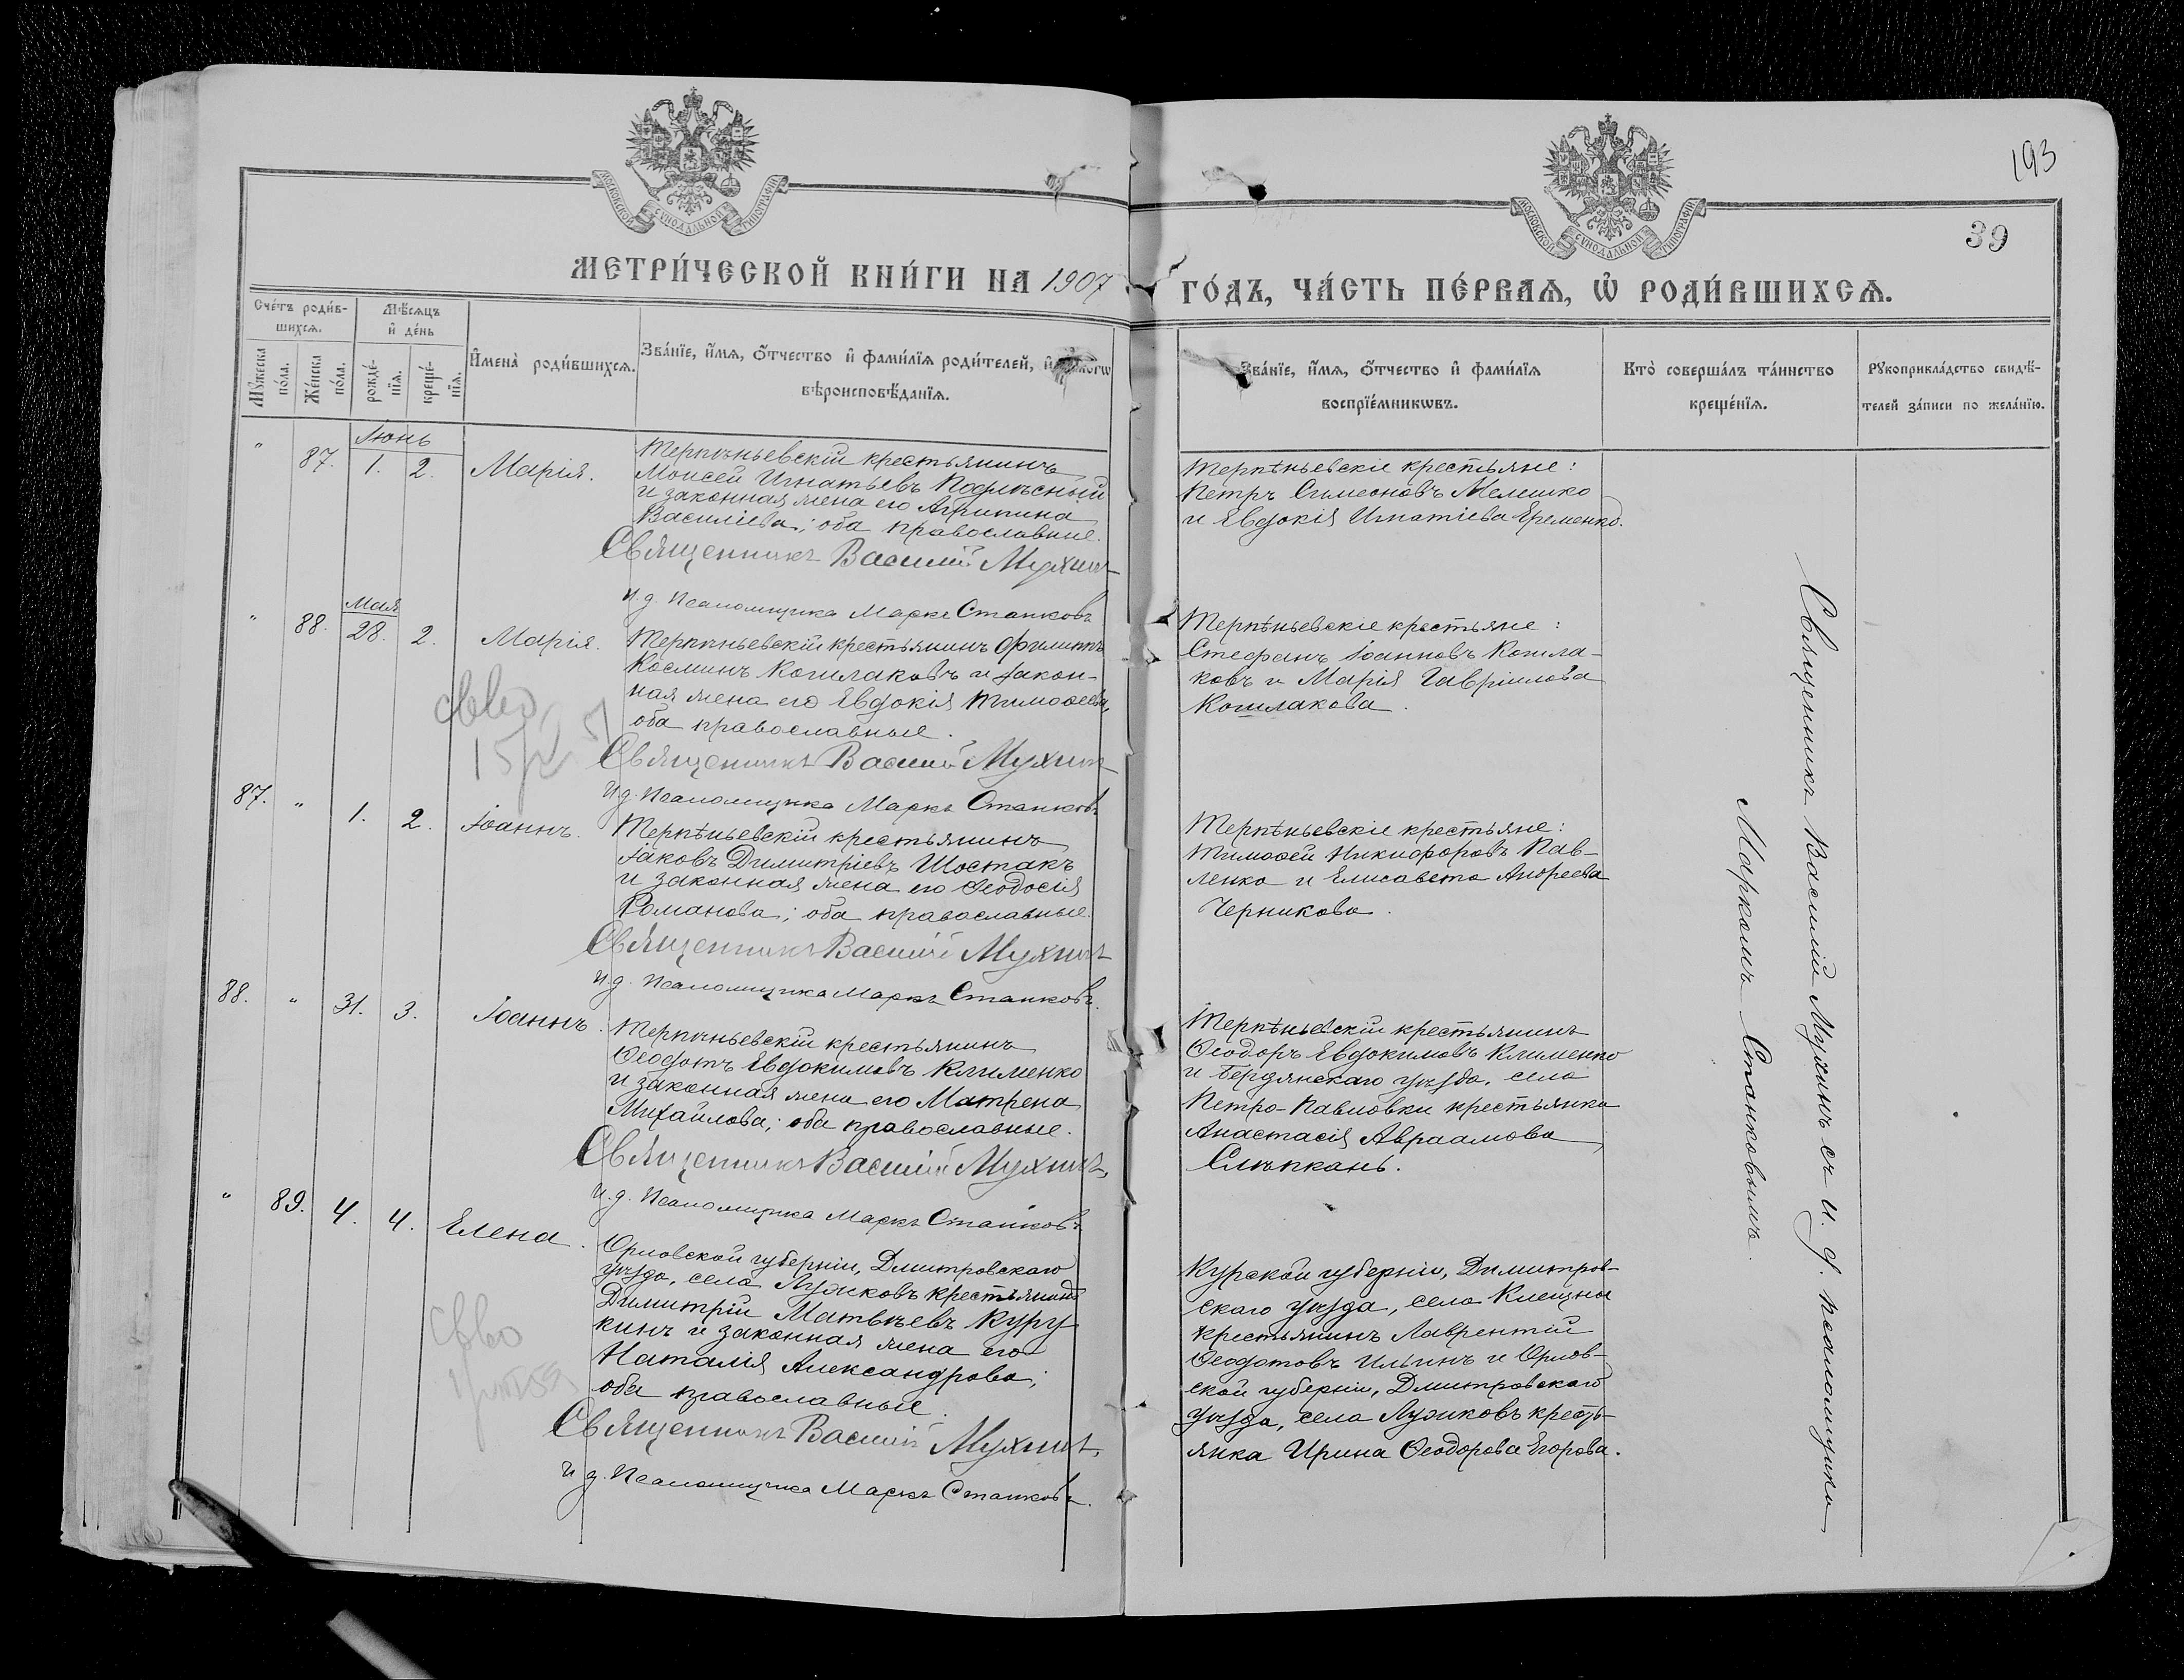 193
39
МОСКОВСКОЙ СѴНОДАЛЬНОЙ ТИПОГРАФІИ
МОСКОВСКОЙ СѴНОДАЛЬНОЙ ТИПОГРАФІИ
МЕТРИ́ЧЕСКОЙ КНИ́ГИ НА 1907 ГО́ДЪ, ЧА́СТЬ ПЕ́РВАѦ, Ѡ҆ РОДИ́ВШИХСѦ.
Сче́тъ роди́в-
шихсѧ.
Мѣ́сѧцъ
и҆ де́нь
Мꙋ́жеска по́ла.
Же́нска по́ла.
рожде́-нїѧ.
креще́-нїѧ.
И҆мена̀ роди́вшихсѧ.
Зва́нїе, и҆́мѧ, ѻ҆́тчество и҆ фами́лїѧ роди́телей, и҆
вѣроисповѣ́данїѧ.
Зва́нїе, и҆́мѧ, ѻ҆́тчество и҆ фами́лїѧ
воспрїе́мникѡвъ.
Кто̀ соверша́лъ та́инство
креще́нїѧ.
Рꙋкоприкла́дство свидѣ́-
телей за́писи по жела́нїю.
Іюнь
" 87. 1. 2. Марія.
Терпѣньевскій крестьянинъ
Моисей Игнатьевъ Подлѣсный
и законная жена его Агрипина
Василіева; оба православные.
Священникъ Василій Мухинъ
и.д. Псаломщика Маркъ Станковъ
Терпѣньевскіе крестьяне:
Петръ Симеоновъ Мелешко
и Евдокія Игнатіева Еременко.
Мая
" 88. 28. 2. Марія.
Терпѣньевскій крестьянинъ Филиппъ
Косминъ Кошлаковъ и закон-
ная жена его Евдокія Тимоѳеева,
оба православные.
Священникъ Василій Мухинъ
и.д. Псаломщика Маркъ Станковъ
Терпѣньевскіе крестьяне:
Стефанъ Іоанновъ Кошла-
ковъ и Марія Гавріилова
Кошлакова.
87. " 1. 2. Іоаннъ.
Терпѣньевскій крестьянинъ
Іаковъ Димитріевъ Шостакъ
и законная жена его Ѳеодосія
Романова; оба православные.
Священникъ Василій Мухинъ
и.д. Псаломщика Маркъ Станковъ.
Терпѣньевскіе крестьяне:
Тимоѳей Никифоровъ Пав-
ленко и Елисавета Андреева
Черникова.
88. " 31. 3. Іоаннъ.
Терпѣньевскій крестьянинъ
Ѳеодотъ Евдокимовъ Клименко
и законная жена его Матрена
Михайлова; оба православные.
Священникъ Василій Мухинъ,
и.д. Псаломщика Маркъ Станковъ
Терпѣньевскій крестьянинъ
Ѳеодоръ Евдокимовъ Клименко
и Бердянскаго уѣзда, села
Петро-Павловки крестьянка
Анастасія Авраамова
Слѣпкань.
" 89. 4. 4. Елена.
Орловской губерніи, Дмитровскаго
уѣзда, села Лужковъ крестьянинъ
Димитрій Матвѣевъ Куру
кинъ и законная жена его
Наталія Александрова;
оба православные.
Священникъ Василій Мухинъ,
и.д. Псаломщика Маркъ Станковъ.
Курской губерніи, Димитров-
скаго уѣзда, села Клещны
крестьянинъ Лаврентій
Ѳеодотовъ Ильинъ и Орлов-
ской губерніи, Дмитровскаго
уѣзда, села Лужковъ кресть-
янка Ирина Ѳеодорова Егорова.
Священникъ Василій Мухинъ съ и. д. псаломщика
Маркомъ Станковымъ.